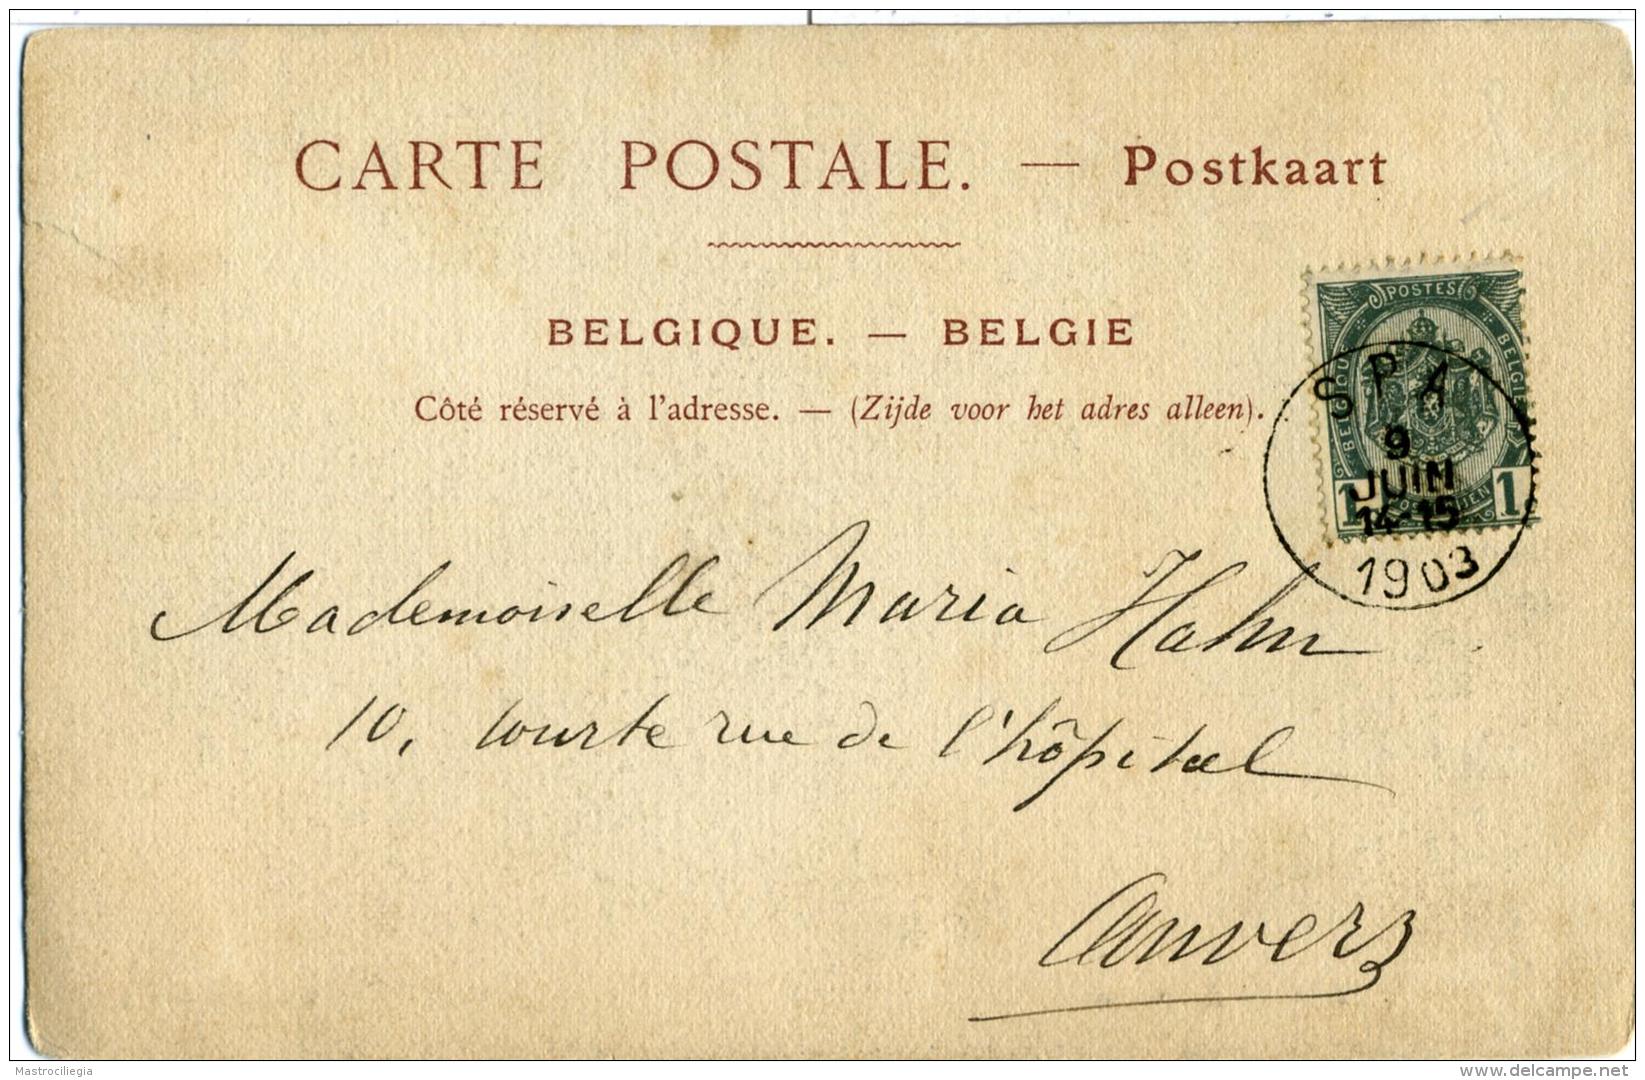 CARTE POSTALE. — Postkaart
BELGIQUE. — BELGIE
Côté réservé à l'adresse. — (Zijde voor het adres alleen).
POSTES
BELGIQUE
BELGIE
1 1
SPA
9
JUIN
14-15
1903
Mademoiselle Maria Hahn
10, courte rue de l'hôpital
Anvers
Mastrociliegia
delcampe.net